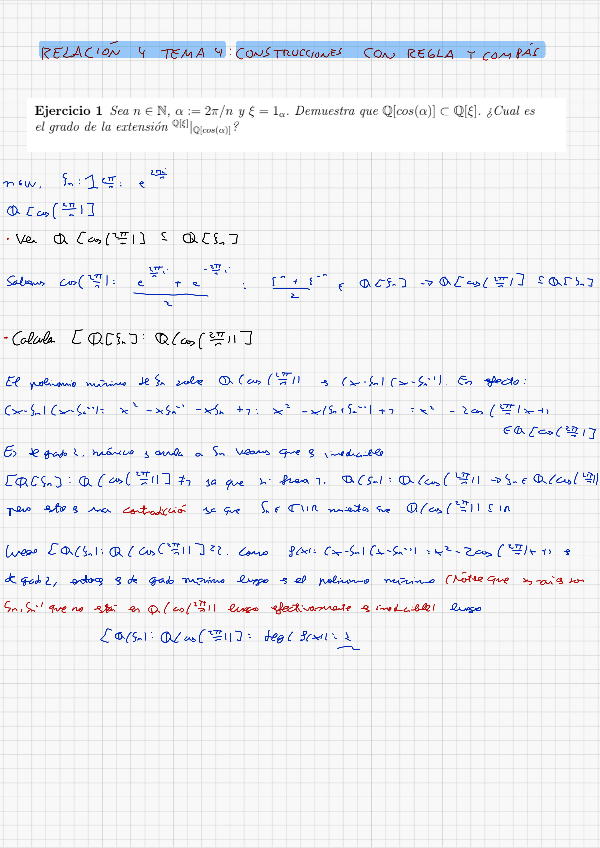 RELACIÓN 4 TEMA 4: CONSTRUCCIONES CON REGLA Y COMPÁS
Ejercicio 1 Sea n ∈ ℕ, α := 2π/n y ξ = 1_α. Demuestra que ℚ[cos(α)] ⊂ ℚ[ξ]. ¿Cual es
el grado de la extensión ℚ[ξ]|ℚ[cos(α)]?
n ∈ ℕ, ξn = 1_{2π/n} = e^{2πi/n}
ℚ[cos(2π/n)]
· Ver ℚ[cos(2π/n)] ⊆ ℚ[ξn]
Sabemos cos(2π/n) = (e^{2πi/n} + e^{-2πi/n})/2 = (ξ^n + ξ^{-n})/2 ∈ ℚ[ξn] → ℚ[cos(2π/n)] ⊆ ℚ[ξn]
· Calcula [ℚ[ξn] : ℚ(cos(2π/n))]
El polinomio mínimo de ξn sobre ℚ(cos(2π/n)) es (x-ξn)(x-ξn^{-1}). En efecto:
(x-ξn)(x-ξn^{-1}) = x² - xξn^{-1} - xξn + 1 = x² - x(ξn+ξn^{-1}) + 1 = x² - 2cos(2π/n)x + 1
∈ ℚ[cos(2π/n)]
Es de grado 2, mónico y anula a ξn veamos que es irreducible
[ℚ[ξn] : ℚ(cos(2π/n))] ≠ 1 ya que si fuera 1, ℚ(ξn) = ℚ(cos(2π/n)) → ξn ∈ ℚ(cos(2π/n))
pero esto es una contradicción ya que ξn ∈ ℂ\ℝ mientras que ℚ(cos(2π/n)) ⊆ ℝ
Luego [ℚ(ξn) : ℚ(cos(2π/n))] ≥ 2. Como f(x) = (x-ξn)(x-ξn^{-1}) = x² - 2cos(2π/n)x + 1 es
de grado 2, entonces es de grado mínimo luego es el polinomio mínimo (Nótese que sus raíces son
ξn, ξn^{-1} que no están en ℚ(cos(2π/n)) luego efectivamente es irreducible) luego
[ℚ(ξn) : ℚ(cos(2π/n))] = deg(f(x)) = 2